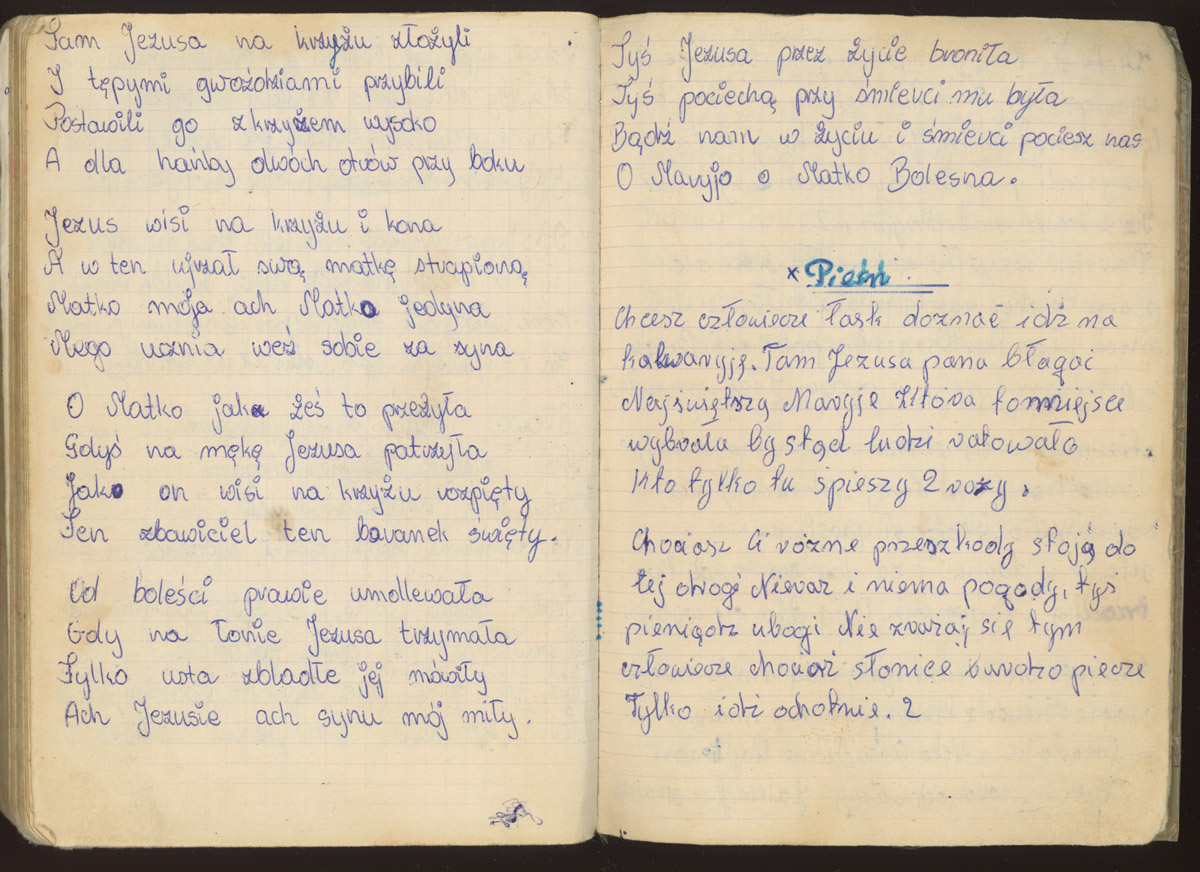 Tam Jezusa na krzyżu złożyli
I tępymi gwoździami przybili
Postawili go z krzyżem wysoko
A dla hańby dwóch otrów przy boku
Jezus wisi na krzyżu i kona
A w ten ujrzał swą matkę strapioną
Matko moja ach Matko jedyna
Mego ucznia weź sobie za syna
O Matko jaka żeś to przeżyła
Gdyś na mękę Jezusa patrzyła
Jako on wisi na krzyżu rozpięty
Ten zbawiciel ten baranek święty.
Od boleści prawie umdlewała
Gdy na łonie Jezusa trzymała
Tylko usta zbladłe jej mówiły
Ach Jezusie ach synu mój miły.
Tyś Jezusa przez życie broniła
Tyś pociechą przy śmierci mu była
Bądź nam w życiu i śmierci pociesz nas
O Maryjo o Matko Bolesna.
x Pieśń
Chcesz człowiecze łask doznać idź na
kalwaryję. Tam Jezusa pana błagać
Najświętszą Maryje Która to miejsce
wybrała by stąd ludzi ratowała
Kto tylko tu spieszy 2 razy.
Chociasz Ci rózne przeszkody stoją do
tej drogi Nieraz i niema pogody, tyś
pieniądz ubogi Nie zwarzaj się tym
człowiecze chociaż słonice bardzo piecze
Tylko idź ochotnie. 2